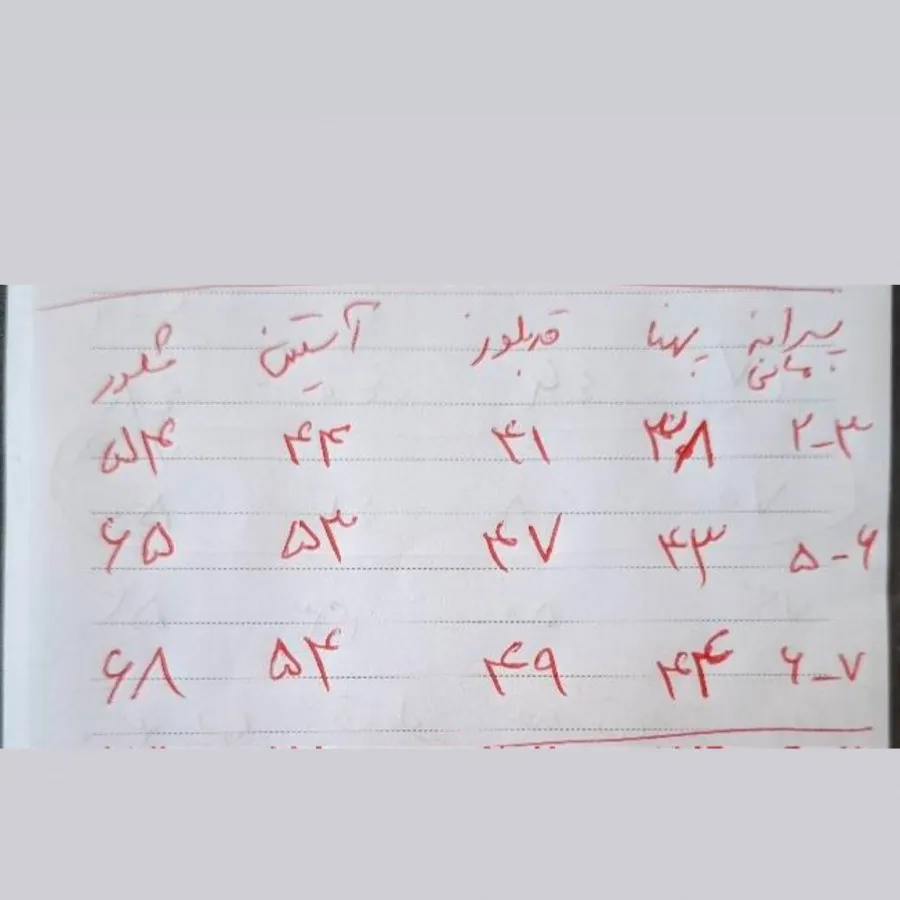 پسرانه پهنا قدبلوز آستین شلوار
مانی
۲-۳ ۳۸ ۴۱ ۴۴ ۵۴
۵-۶ ۴۳ ۴۷ ۵۳ ۶۵
۶-۷ ۴۴ ۴۹ ۵۴ ۶۸